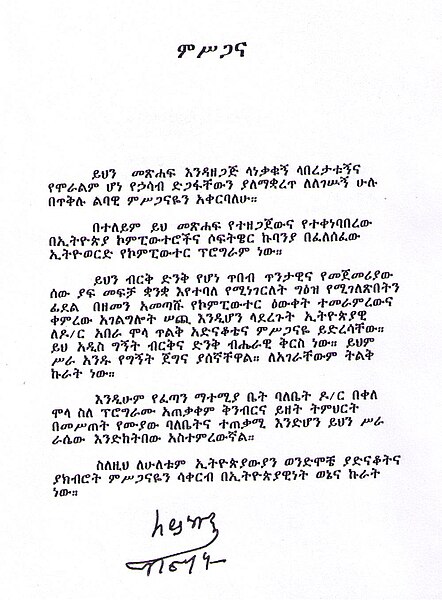 ምሥጋና
ይህን መጽሐፍ እንዳዘጋጅ ላነቃቁኝ ላበረታቱኝና
የሞራልም ሆነ የኃሳብ ድጋፋቸውን ያለማቋረጥ ለለገሡኝ ሁሉ
በጥቅሉ ልባዊ ምሥጋናዬን አቀርባለሁ።
በተለይም ይህ መጽሐፍ የተዘጋጀውና የተቀነባበረው
በኢትዮጵያ ኮምፒውተሮችና ሶፍትዌር ኩባንያ በፈለሰፈው
ኢትዮወርድ የኮምፒውተር ፕሮግራም ነው።
ይህን ብርቅ ድንቅ የሆነ ጥበብ ጥንታዊና የመጀመሪያው
ሰው ያፍ መፍቻ ቋንቋ እየተባለ የሚነገርለት ግዕዝ የሚገለጽበትን
ፊደል በዘመን አመጣሹ የኮምፒውተር ዕውቀት ተመራምረውና
ቀምረው አገልግሎት ሠጪ እንዲሆን ላደረጉት ኢትዮጵያዊ
ለዶ/ር አበራ ሞላ ጥልቅ አድናቆቴና ምሥጋናዬ ይድረሳቸው።
ይህ አዲስ ግኝት ብርቅና ድንቅ ብሔራዊ ቅርስ ነው። ይህም
ሥራ አንዱ የግኝት ጀግና ያሰኛቸዋል። ለአገራቸውም ትልቅ
ኩራት ነው።
እንዲሁም የፈጣን ማተሚያ ቤት ባለቤት ዶ/ር በቀለ
ሞላ ስለ ፕሮግራሙ አጠቃቀም ቅንብርና ይዘት ትምህርት
በመሥጠት የሙያው ባለቤትና ተጠቃሚ እንድሆን ይህን ሥራ
ራሴው እንድከትበው አስተምረውኛል።
ስለዚህ ለሁለቱም ኢትዮጵያውያን ወንድሞቼ ያድናቆትና
ያክብሮት ምሥጋናዬን ሳቀርብ በኢትዮጵያዊነት ወኔና ኩራት
ነው።